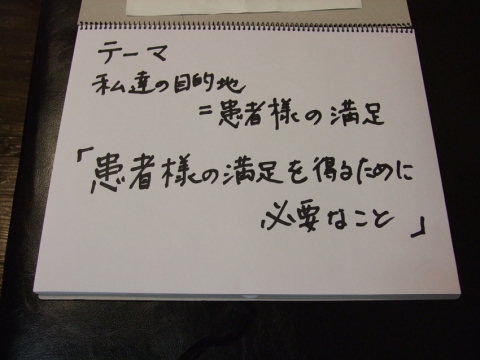 テーマ
私達の目的地
=患者様の満足
「患者様の満足を得るために
必要なこと」